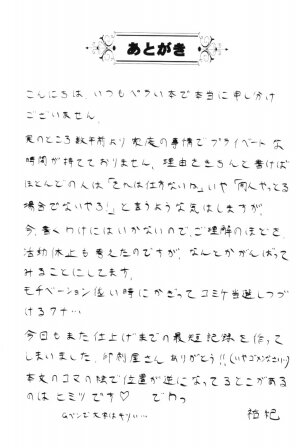 あとがき
こんにちは、いつもペラい本で本当に申しわけ
ございません。
実のところ数年前より家庭の事情でプライベートな
時間が持てておりません。理由をきちんと書けば
ほとんどの人は「それは仕方ないわ」いや「同人やってる
場合でないやろ!」と言うような気はしますが、
今、書くわけにはいかないので、ご理解のほどを。
活動休止も考えたのですが、なんとかがんばって
みることにしてます。
モチベーション低い時にかぎってコミケ当選しつづ
けるワナ…
今回もまた仕上げまでの最短記録を作って
しまいました。印刷屋さんありがとう!!(いやゴメンなさい)
本文のコマの絵で位置が逆になってるところがある
のはヒミツです♡ でわっ
Gペンで文字はキツい…